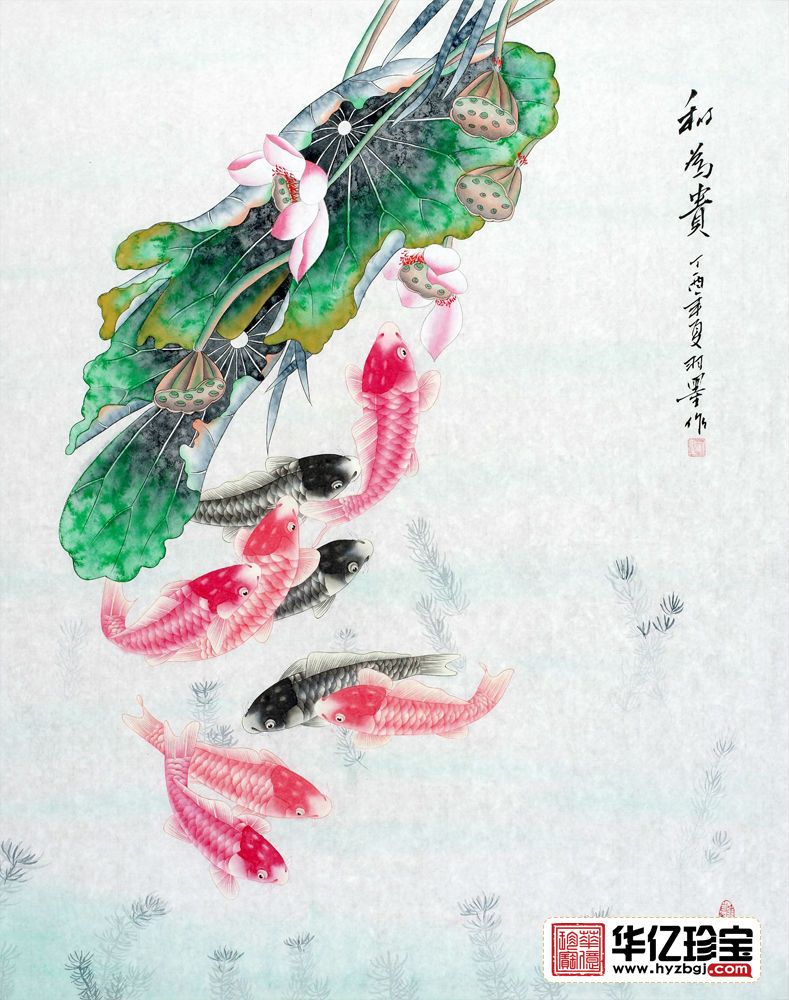 和為貴
丁酉年夏羽墨作
華億珍寶
华亿珍宝
www.hyzbgj.com